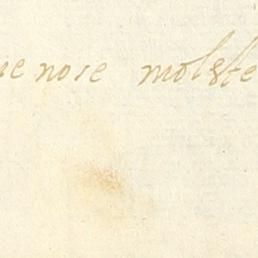 ne nose molste